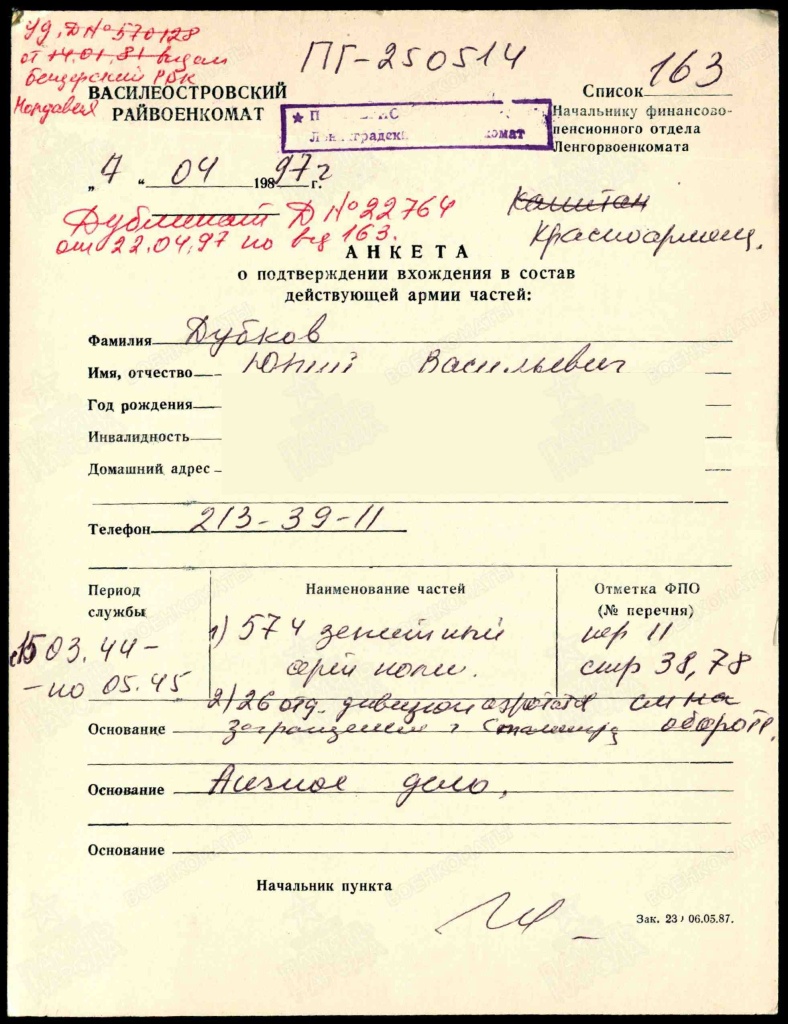 Уд. Д № 570128
от 14.01.81 выдан
РВК
ПГ-250514
ВАСИЛЕОСТРОВСКИЙ
РАЙВОЕНКОМАТ
Список 163
Начальнику финансово-
пенсионного отдела
Ленгорвоенкомата
„7“ 04 1987 97 г г.
Дубликат Д № 22764
от 22.04.97 по вед 163.
Капитан
Красноармеец.
АНКЕТА
о подтверждении вхождения в состав
действующей армии частей:
Фамилия Дубков
Имя, отчество Юлий Васильевич
Год рождения
Инвалидность
Домашний адрес
Телефон 213-39-11
Период
службы
Наименование частей
Отметка ФПО
(№ перечня)
с 15 03.44 –
– по 05.45
1) 574 зенитный
полк.
пер 11
стр 38, 78
2) 26 отд. дивизион аэростатов
заграждения г. Сталинград
см на
обороте.
Основание
Основание Личное дело.
Основание
Начальник пункта
Зак. 23 06.05.87.